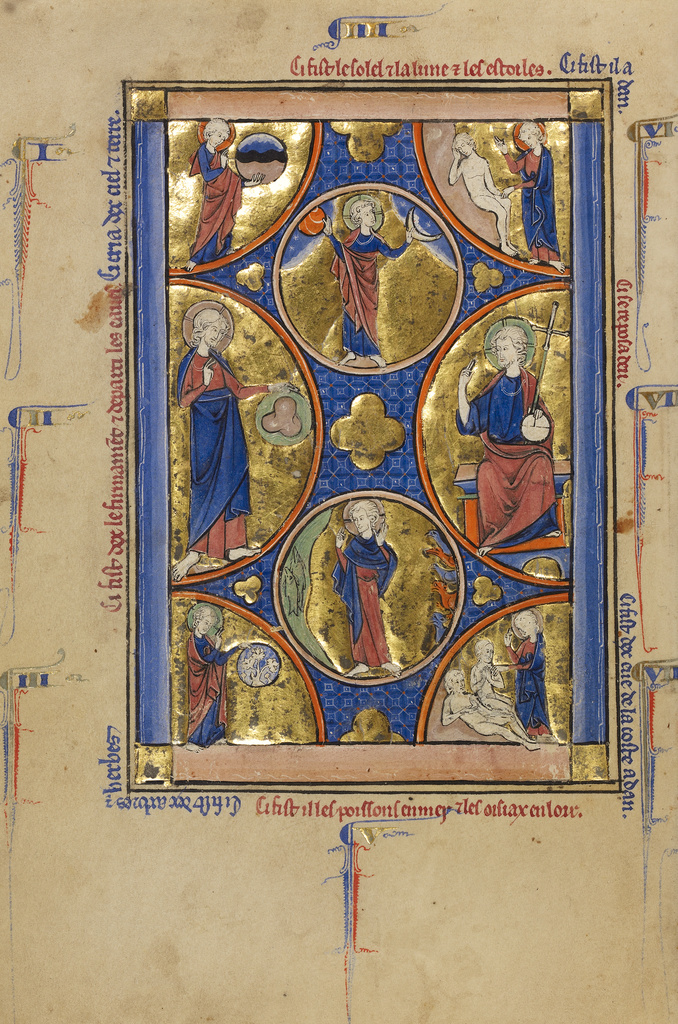 IIII
Ci fist le solel ⁊ la lune ⁊ les estoiles.
Ci fist il a
dan.
I
Ci cria dex ciel ⁊ terre.
II
Ci fist dex le firmament ⁊ departi les eaues
III
Ci fist dex arbres
⁊ herbes
V
Ci fist il les poissons en mer ⁊ les oisiax en loir.
VI
Ci se reposa deu.
VI
Ci fist dex eue de la coste adan.
VII